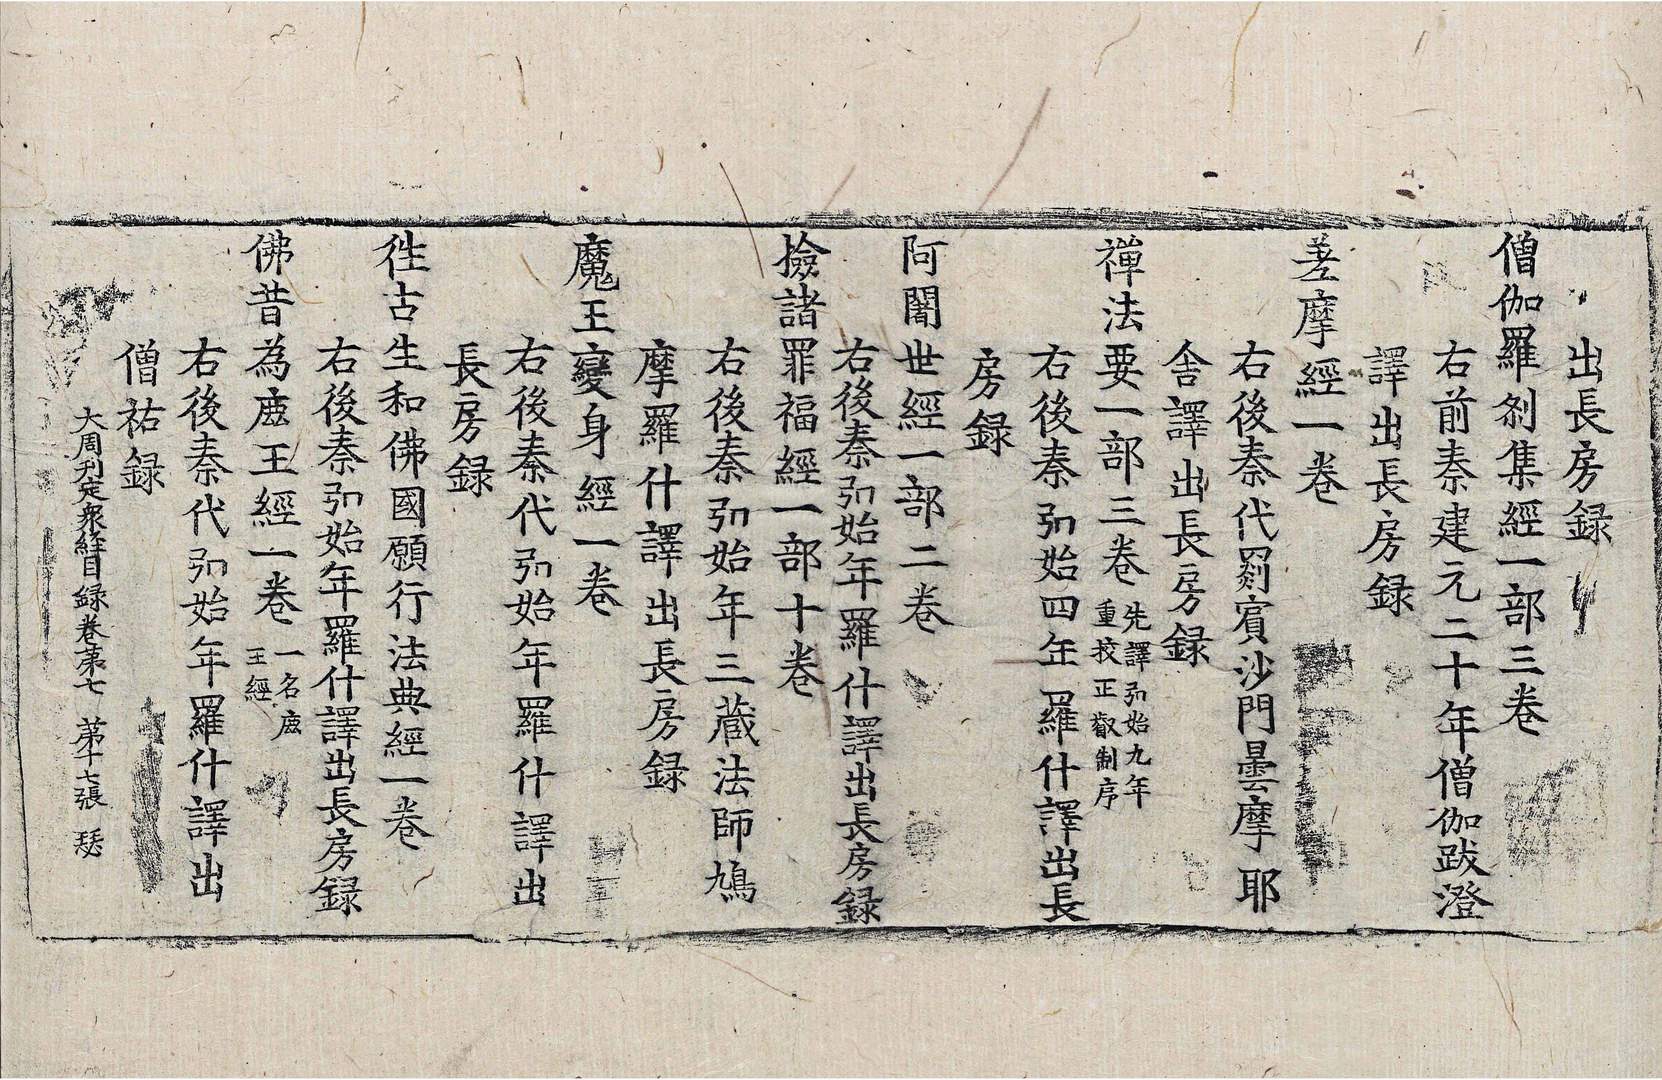 出長房録
僧伽羅刹集經一部三巻
右前秦建元二十年僧伽跋澄
譯出長房録
差摩經一巻
右後秦代罽賓沙門曇摩耶
舍譯出長房録
禪法要一部三巻 先譯弘始九年
重挍正叡制序
右後秦弘始四年羅什譯出長
房録
阿闍世經一部二巻
右後秦弘始年羅什譯出長房録
撿諸罪福經一部十巻
右後秦弘始年三蔵法師鳩
摩羅什譯出長房録
魔王變身經一巻
右後秦代弘始年羅什譯出
長房録
徃古生和佛國願行法典經一巻
右後秦弘始年羅什譯出長房録
佛昔為鹿王經一巻 一名鹿
王經
右後秦代弘始年羅什譯出
僧祐録
大周刋定衆經目録巻第七 第十七張 瑟